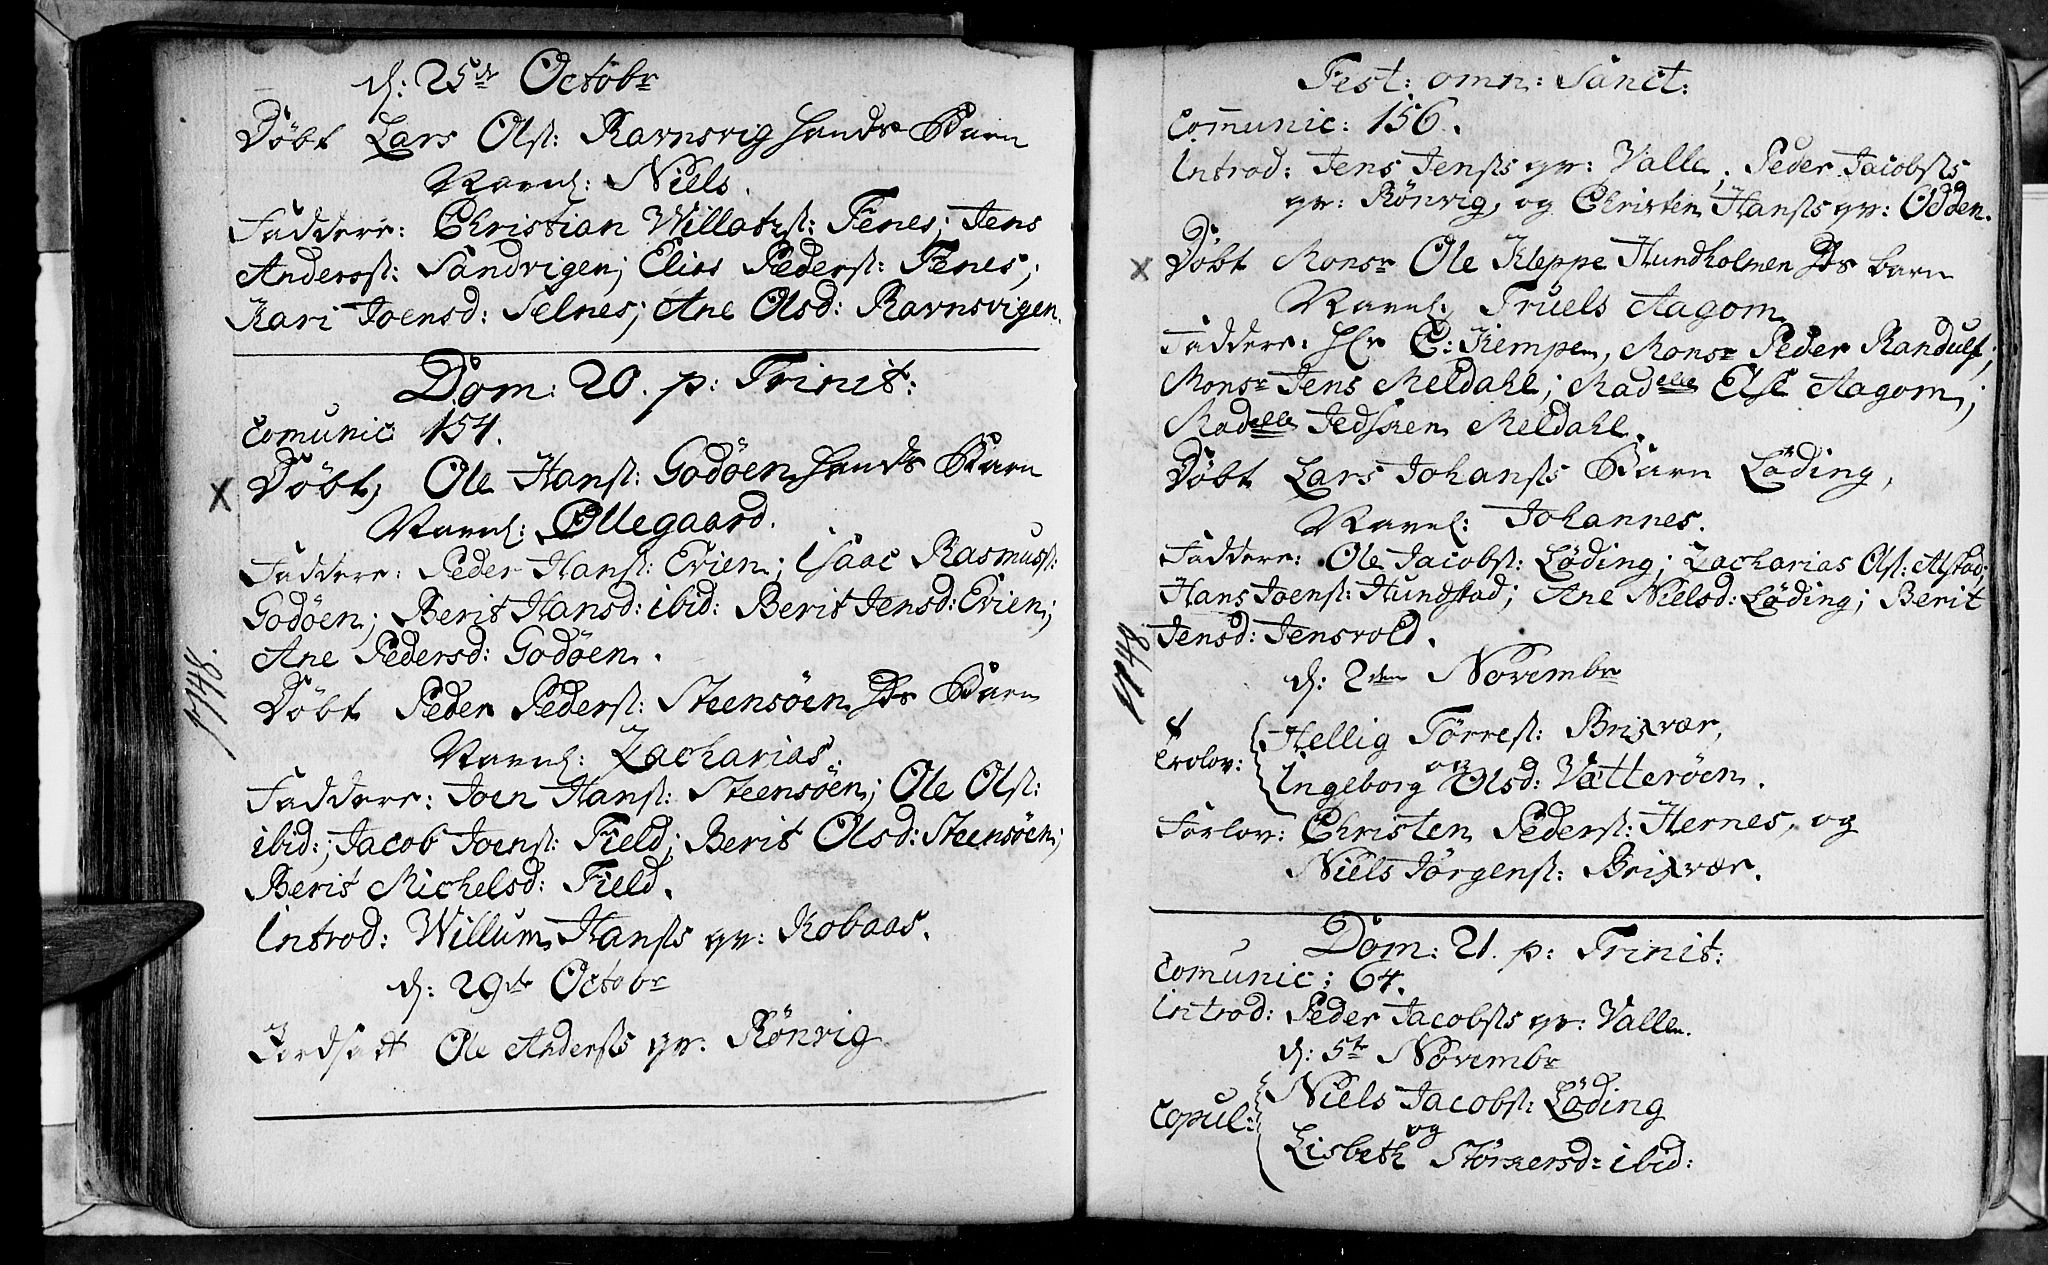 d: 25de Octobr
Döbt Lars Ols: Ravnsvig hands Barn
Navnl: Niels.
Faddere: Christian Willats: Fenes; Jens
Anderss: Sandvigen; Elias Peders: Fenes;
Kari Joensd: Selnes; Ane Olsd: Ravnsvigen.
Dom: 20. p: Trinit:
Comunic 154.
X Döbt, Ole Hans: Godöen hands Barn
Navnl: Ollegaard.
Faddere: Peder Hans: Evien; Isaac Rasmuss:
Godöen; Berit Hansd: ibid: Berit Jensd: Evien;
Ane Pedersd: Godöen.
1748.
Döbt Peder Peders: Steensöen Hs Barn
Navnl: Zacharias.
Faddere: Joen Hans: Steensöen; Ole Ols:
ibid:; Jacob Joens: Field; Berit Olsd: Steensöen;
Berit Michelsd: Field.
Introd: Willum Hanss qv: Kobaas.
d: 29de Octobr
Jordsatt Ole Anderss qv: Rönvig
Fest: omn: Sanct:
Comunic: 156.
Introd: Jens Jenss qv: Valle, Peder Jacobss
qv: Rönvig, og Christen Hanss qv: Odden.
X Döbt Monsr Ole Kleppe Hundholmen Hs barn
Navnl: Truels Aagom
Faddere: Hr C: Kempe, Monsr Peder Randulf;
Monsr Jens Meldahl; Madelle Else Aagom;
Madelle Jedsken Meldahl.
Döbt Lars Johanss Barn Löding,
Navnl: Johannes.
Faddere: Ole Jacobs: Löding; Zacharias Ols: Alstad;
Hans Joens: Hundstad; Ane Nielsd: Löding; Berit
Jensd: Jensvold.
1748
d: 2den Novembr
Trolov: Hellig Törres: Brixvær,
og
Ingeborg Olsd: Vatteröen.
Forlov: Christen Peders: Hernes, og
Niels Jörgens: Brixvær.
Dom: 21. p: Trinit:
Comunic: 64.
Introd: Peder Jacobss qv: Valle.
d: 5te Novembr
Copul: Niels Jacobs: Löding
og
Lisbeth Störkersd: ibid: